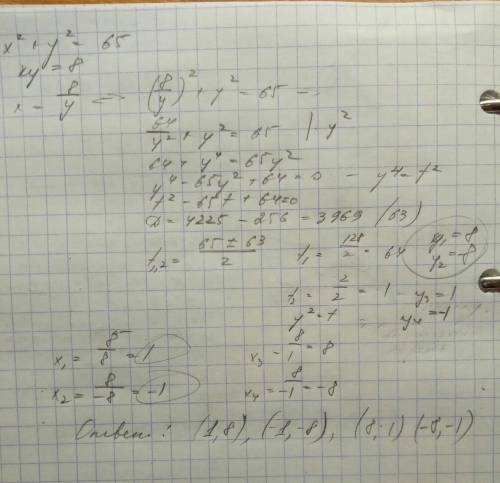 x² + y² = 65
xy = 8
x = 8/y => (8/y)² + y² = 65 =>
64/y² + y² = 65 | · y²
64 + y⁴ = 65y²
y⁴ - 65y² + 64 = 0 - y⁴ = t²
t² - 65t + 64 = 0
D = 4225 - 256 = 3969 (63)
t₁,₂ = (65 ± 63)/2 t₁ = 128/2 = 64 y₁ = 8
y₂ = -8
t₂ = 2/2 = 1 - y₃ = 1
y² = t y₄ = -1
x₁ = 8/8 = 1 x₃ = 8/1 = 8
x₂ = 8/-8 = -1 x₄ = 8/-1 = -8
Ответ: (1,8), (-1,-8), (8,1) (-8,-1)